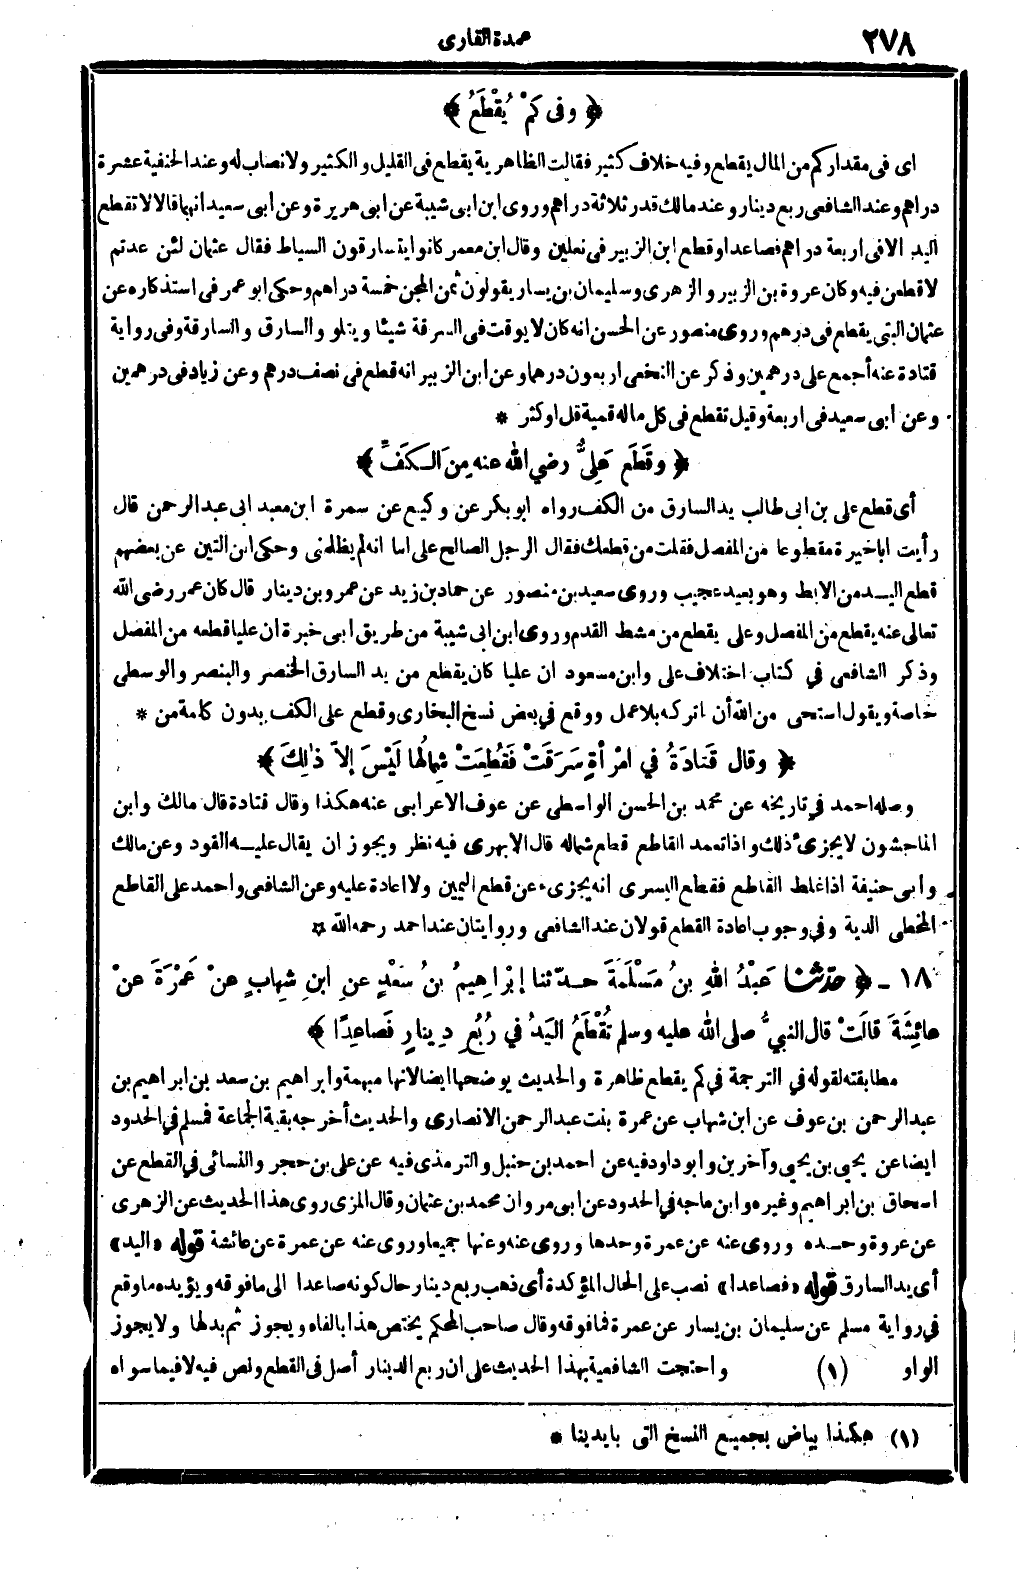 ٢٧٨
عمدة القارى
﴿ وفى كَمْ يُقْطَعُ ﴾
اى فى مقدار كم من المال يقطع وفيه خلاف كثير فقالت الظاهرية يقطع فى القليل والكثير ولا نصاب له وعند الحنفية عشرة
دراهم وعند الشافعى ربع دينار وعند مالك قدر ثلاثة دراهم وروى ابن ابى شيبة عن ابى هريرة وعن ابى سعيد انهما قالا لا تقطع
اليد الا فى اربعة دراهم فصاعدا وقطع ابن الزبير فى نعلين وقال ابن معمر كانوا يتسارقون السياط فقال عثمان لئن عدتم
لاقطعن فيه وكان عروة بن الزبير والزهرى وسليمان بن يسار يقولون ثمن المجن خمسة دراهم وحكى ابو عمر فى استذكاره عن
عثمان البتى يقطع فى درهم وروى منصور عن الحسن انه كان لا يوقت فى السرقة شيئا ويتلو والسارق والسارقة وفى رواية
قتادة عنه أجمع على درهمين وذكر عن النخعى اربعون درهما وعن ابن الزبير انه قطع فى نصف درهم وعن زياد فى درهمين
وعن ابى سعيد فى اربعة وقيل تقطع فى كل ماله قمية قل او كثر *
﴿ وقَطَع عَلِيٌّ رضي الله عنه مِنَ الـكَفِّ ﴾
أى قطع على بن ابى طالب يد السارق من الكف رواه ابو بكر عن وكيع عن سمرة ابن معبد ابى عبد الرحمن قال
رأيت ابا خيرة مقطوعا من المفصل فقلت من قطعك فقال الرجل الصالح على اما انه لم يظلمنى وحكى ابن التين عن بعضهم
قطع اليـد من الابط وهو بعيد عجيب وروى سعيد بن منصور عن حماد بن زيد عن عمرو بن دينار قال كان عمر رضى الله
تعالى عنه يقطع من المفصل وعلى يقطع من مشط القدم وروى ابن ابى شيبة من طريق ابى خبرة ان عليا قطعه من المفصل
وذكر الشافعى في كتاب اختلاف على وابن مسعود ان عليا كان يقطع من يد السارق الخنصر والبنصر والوسطى
خاصة ويقول استحى من الله أن اتركه بلا عمل ووقع في بعض نسخ البخارى وقطع على الكف بدون كلمة من *
﴿ وقال قَتَادَةُ في امْرأةٍ سَرَقَتْ فَقُطِعَتْ شِمالُها لَيْسَ إلاّ ذٰلِكَ ﴾
وصله احمد في تاريخه عن محمد بن الحسن الواسطى عن عوف الاعرابى عنه هكذا وقال قتادة قال مالك وابن
الماجشون لا يجزى ذلك واذا تعمد القاطع قطع شماله قال الابهرى فيه نظر ويجوز ان يقال عليـه القود وعن مالك
وأبى حنيفة اذا غلط القاطع فقطع اليسرى انه يجزىء عن قطع اليمين ولا اعادة عليه وعن الشافعى واحمد على القاطع
المخطى الدية وفي وجوب اعادة القطع قولان عند الشافعى وروايتان عند احمد رحمه الله *
١٨ - ﴿ حدّثنا عَبْدُ اللهِ بنُ مَسْلَمَةَ حـدّثنا إبْراهِيمُ بنُ سَعْدٍ عنِ ابنِ شِهابٍ عنْ عَمْرَةَ عنْ
عائِشَةَ قالَتْ قال النبيُّ صلى الله عليه وسلم تُقْطَعُ اليَدُ في رُبُعِ دِينارٍ فَصاعِدًا ﴾
مطابقته لقوله في الترجمة في كم يقطع ظاهرة والحديث يوضحها ايضا لانها مبهمة وابراهيم بن سعد بن ابراهيم بن
عبد الرحمن بن عوف عن ابن شهاب عن عمرة بنت عبد الرحمن الانصارى والحديث أخرجه بقية الجماعة فمسلم في الحدود
ايضا عن يحيى بن يحيى وآخرين وابو داود فيه عن احمد بن حنبل والترمذى فيه عن على بن حجر والنسائى في القطع عن
اسحاق بن ابراهيم وغيره وابن ماجه في الحدود عن ابى مروان محمد بن عثمان وقال المزى روى هذا الحديث عن الزهرى
عن عروة وحـده وروى عنه عن عمرة وحدها وروى عنه وعنها جميعا وروى عنه عن عمرة عن عائشة قوله «اليد»
أى يد السارق قوله «فصاعدا» نصب على الحال المؤكدة أى ذهب ربع دينار حال كونه صاعدا الى ما فوقه ويؤيده ما وقع
في رواية مسلم عن سليمان بن يسار عن عمرة فما فوقه وقال صاحب المحكم يختص هذا بالفاء ويجوز ثم بدلها ولا يجوز
الواو (١) واحتجت الشافعية بهذا الحديث على ان ربع الدينار أصل فى القطع ونص فيه لا فيما سواه
(١) هكذا بياض بجميع النسخ التى بايدينا *